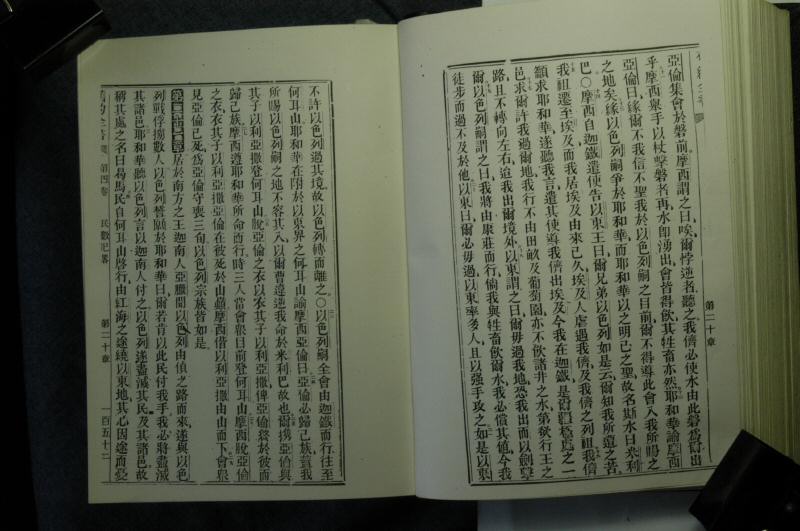 亞倫集會於磐前摩西謂之曰唉爾悖逆者聽之我儕必使水由此磐爲爾出
乎摩西舉手以杖擊磐者再水卽湧出會皆得飲其牲畜亦然耶和華諭摩西
亞倫曰緣爾不我信不聖我於以色列嗣之目前爾不得導此會入我所賜之
之地矣緣以色列嗣爭於耶和華而耶和華以之明己之聖故名斯水曰米利
巴○摩西自迦鐵遣使告以東王曰爾兄弟以色列如是云爾知我所遭之苦
我祖遷至埃及而我居埃及由來已久埃及人虐遇我儕及我儕之列祖我儕
籲求耶和華遂聽我言遣其使導我儕出埃及今我在迦鐵是爾
邑求爾許我過爾地我行不由田畝及葡萄園亦不飲諸井之水第欲行王之
路且不轉向左右迨我出爾境外以東謂之曰爾毋過我地恐我出而以劍擊
爾以色列嗣謂之曰我將由康莊而行倘我與牲畜飲爾水我必償其値今我
徒步而過不及於他以東曰爾必毋過以東率多人且以强手攻之如是以東
第二十章
不許以色列過其境故以色列轉而離之○以色列嗣全會由迦鐵而行往至
何耳山耶和華在附於以東界之何耳山諭摩西亞倫曰亞倫必歸己族蓋我
所賜以色列嗣之地不容其入以爾曹違逆我命於米利巴故也爾攜亞倫與
其子以利亞撒登何耳山脫亞倫之衣以衣其子以利亞撒俾亞倫終於彼而
歸己族摩西遵耶和華所命而行時三人當會衆目前登何耳山摩西脫亞倫
之衣衣其子以利亞撒亞倫在彼死於山巔摩西偕以利亞撒由山而下會衆
見亞倫已死爲亞倫守喪三旬以色列宗族皆如是
居於南方之王迦南人亞臘聞以色列由偵之路而來遂與以色
列戰俘擄數人以色列誓願於耶和華曰爾若肯以此民付我手我必將盡滅
其諸邑耶和華聽以色列言以迦南人付之以色列遂盡滅其民及其諸邑故
稱其處之名曰曷馬民自何耳山啓行由紅海之途繞以東地其心因途而憂
舊約全書 第四卷 民數紀畧 第二十章 一百五十二